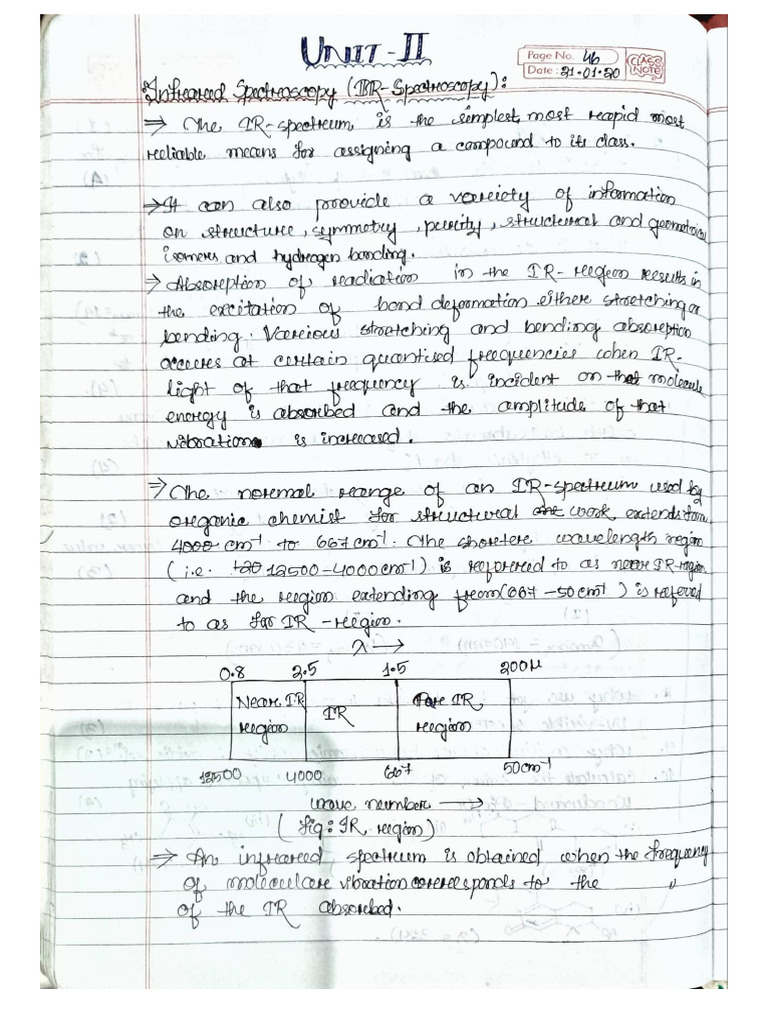 UNIT-II
Page No. 46
Date: 21.01.20
CLASS NOTE
Infrared Spectroscopy (IR-Spectroscopy):
⇒ The IR-spectrum is the simplest, most rapid most
reliable means for assigning a compound to its class.
⇒ It can also provide a variety of information
on structure, symmetry, purity, structural and geometrical
isomers and hydrogen bonding.
⇒ Absorption of radiation in the IR-region results in
the excitation of bond deformation either stretching or
bending. Various stretching and bending absorption
occures at certain quantised frequencies when IR-
light of that frequency is incident on that molecule
energy is absorbed and the amplitude of that
vibration is increased.
⇒ The normal range of an IR-spectrum used by
organic chemist for structural work extends from
4000 cm⁻¹ to 667 cm⁻¹. The shorter wavelength region
(i.e. 12500-4000cm⁻¹) is reforered to as near IR-region
and the region extending from (667-50cm⁻¹) is refered
to as far IR-region.
λ →
0.8 2.5 1.5 200μ
Near IR region IR Far IR region
12500 4000 667 50cm⁻¹
wave number →
(fig: IR region)
⇒ An infrared spectrum is obtained when the frequency
of molecular vibration corresponds to the "
of the IR absorbed.